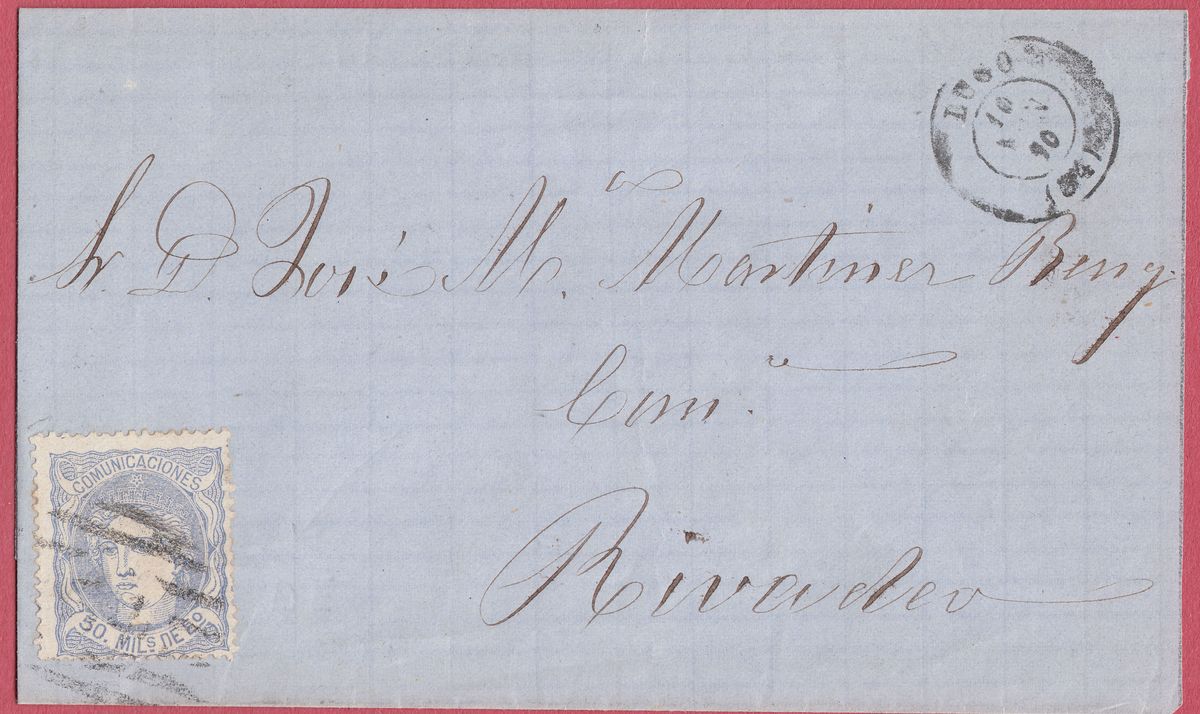 LUGO
10
(34)
Sr. D. José M.ª Martinez Beny.
Com.º
Rivadeo
COMUNICACIONES
30. MILs DE Eo